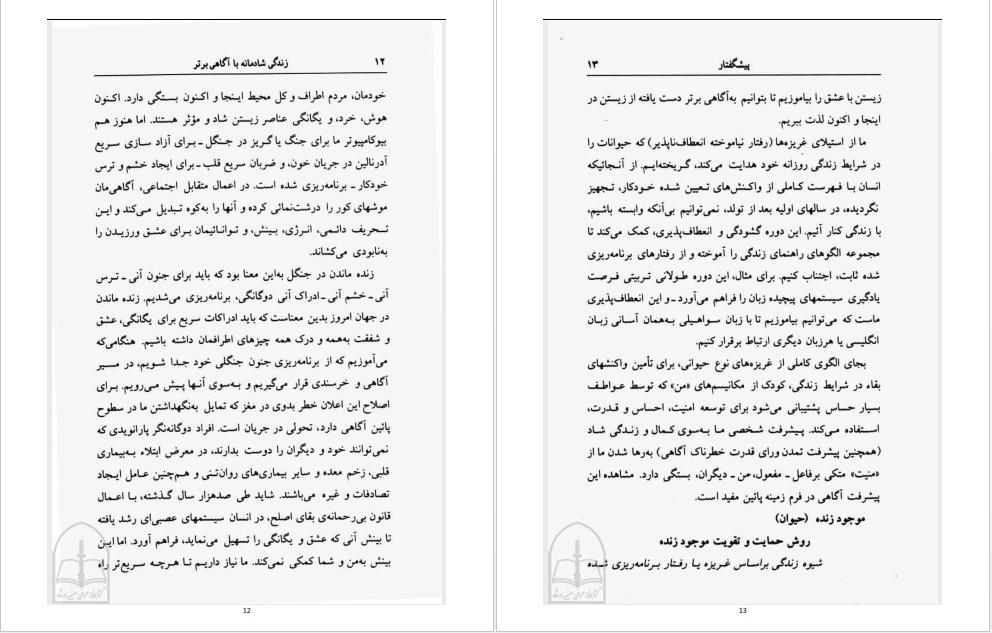 ۱۲ زندگی شادمانه با آگاهی برتر
خودمان، مردم اطراف و کل محیط اینجا و اکنون بستگی دارد. اکنون
هوش، خرد، و یگانگی عناصر زیستن شاد و مؤثر هستند. اما هنوز هم
بیوکامپیوتر ما برای جنگ یا گریز در جنگل ـ برای آزاد سازی سریع
آدرنالین در جریان خون، و ضربان سریع قلب ـ برای ایجاد خشم و ترس
خودکار ـ برنامه‌ریزی شده است. در اعمال متقابل اجتماعی، آگاهی‌مان
موشهای کور را درشت‌نمائی کرده و آنها را به‌کوه تبدیل می‌کند و این
تحریف دائمی، انرژی، بینش، و توانائیمان برای عشق ورزیدن را
به‌نابودی می‌کشاند.
زنده ماندن در جنگل به‌این معنا بود که باید برای جنون آنی ـ ترس
آنی ـ خشم آنی ـ ادراک آنی دوگانگی، برنامه‌ریزی می‌شدیم. زنده ماندن
در جهان امروز بدین معناست که باید ادراکات سریع برای یگانگی، عشق
و شفقت به‌همه و درک همه چیزهای اطرافمان داشته باشیم. هنگامی‌که
می‌آموزیم که از برنامه‌ریزی جنون جنگلی خود جدا شویم، در مسیر
آگاهی و خرسندی قرار می‌گیریم و به‌سوی آنها پیش می‌رویم. برای
اصلاح این اعلان خطر بدوی در مغز که تمایل به‌نگهداشتن ما در سطوح
پائین آگاهی دارد، تحولی در جریان است. افراد دوگانه‌نگر پارانویدی که
نمی‌توانند خود و دیگران را دوست بدارند، در معرض ابتلاء به‌بیماری
قلبی، زخم معده و سایر بیماری‌های روان‌تنی و هم‌چنین عامل ایجاد
تصادفات و غیره می‌باشند. شاید طی صدهزار سال گذشته، با اعمال
قانون بی‌رحمانه‌ی بقای اصلح، در انسان سیستمهای عصبی‌ای رشد یافته
تا بینش آنی که عشق و یگانگی را تسهیل می‌نماید، فراهم آورد. اما این
بینش به‌من و شما کمکی نمی‌کند. ما نیاز داریم تا هرچه سریع‌تر راه
12
پیشگفتار ۱۳
زیستن با عشق را بیاموزیم تا بتوانیم به‌آگاهی برتر دست یافته از زیستن در
اینجا و اکنون لذت ببریم.
ما از استیلای غریزه‌ها (رفتار نیاموخته انعطاف‌ناپذیر) که حیوانات را
در شرایط زندگی روزانه خود هدایت می‌کند، گریخته‌ایم. از آنجائیکه
انسان با فهرست کاملی از واکنش‌های تعیین شده خودکار، تجهیز
نگردیده، در سالهای اولیه بعد از تولد، نمی‌توانیم بی‌آنکه وابسته باشیم،
با زندگی کنار آئیم. این دوره گشودگی و انعطاف‌پذیری، کمک می‌کند تا
مجموعه الگوهای راهنمای زندگی را آموخته و از رفتارهای برنامه‌ریزی
شده ثابت، اجتناب کنیم. برای مثال، این دوره طولانی تربیتی فرصت
یادگیری سیستمهای پیچیده زبان را فراهم می‌آورد ـ و این انعطاف‌پذیری
ماست که می‌توانیم بیاموزیم تا با زبان سواهیلی به‌همان آسانی زبان
انگلیسی یا هرزبان دیگری ارتباط برقرار کنیم.
بجای الگوی کاملی از غریزه‌های نوع حیوانی، برای تأمین واکنشهای
بقاء در شرایط زندگی، کودک از مکانیسم‌های «من» که توسط عواطف
بسیار حساس پشتیبانی می‌شود برای توسعه امنیت، احساس و قدرت،
استفاده می‌کند. پیشرفت شخصی ما به‌سوی کمال و زندگی شاد
(همچنین پیشرفت تمدن ورای قدرت خطرناک آگاهی) به‌رها شدن ما از
«منیت» متکی برفاعل ـ مفعول، من ـ دیگران، بستگی دارد. مشاهده این
پیشرفت آگاهی در فرم زمینه پائین مفید است.
موجود زنده (حیوان)
روش حمایت و تقویت موجود زنده
شیوه زندگی براساس غریزه یا رفتار برنامه‌ریزی شده
13